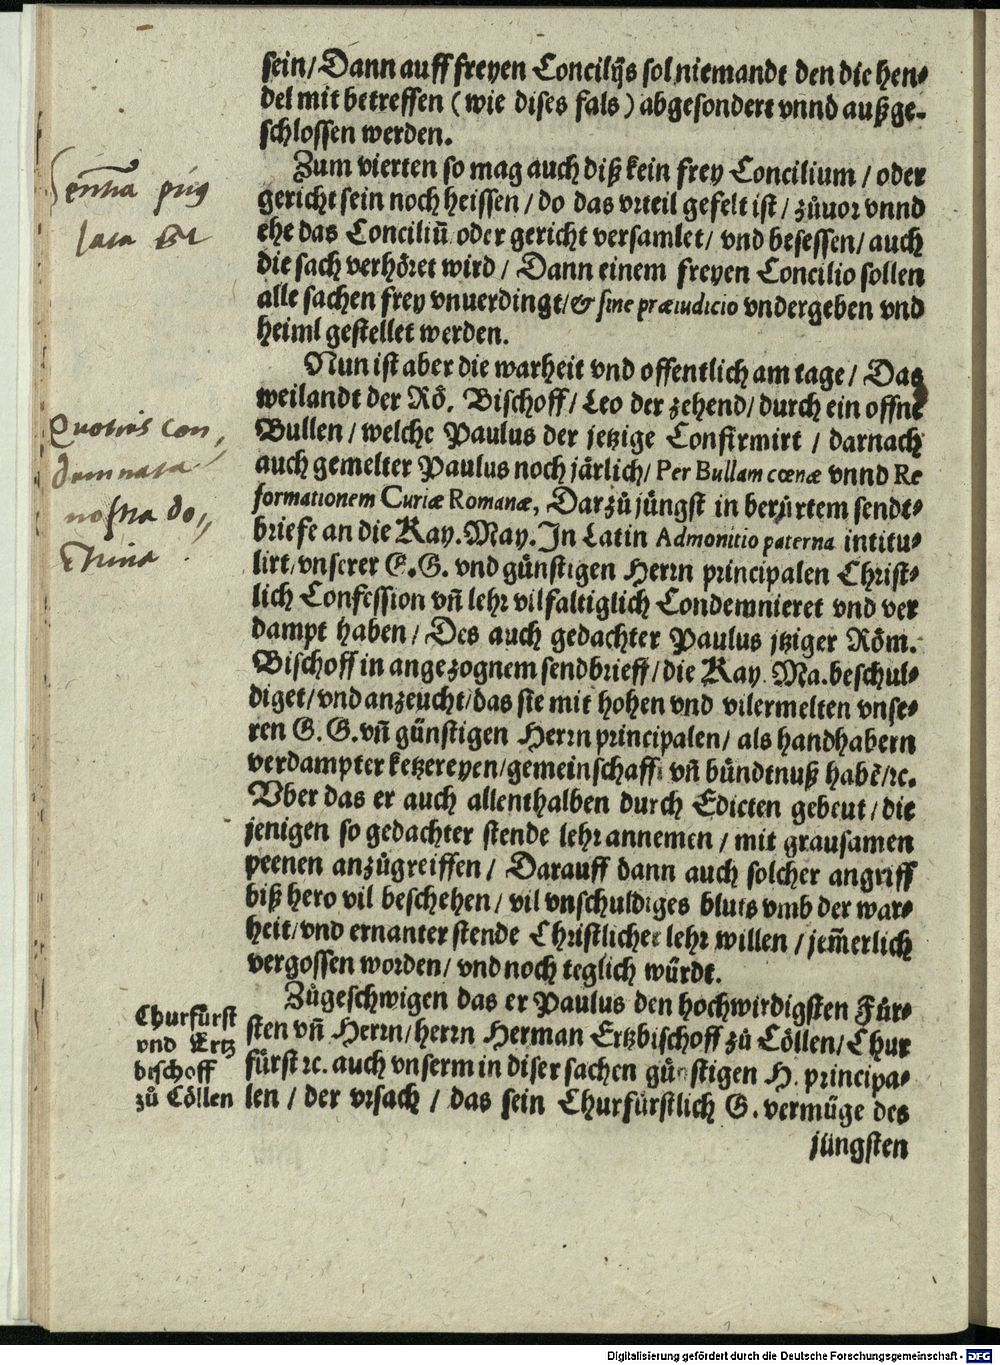 sein/ Dann auff freyen Concilijs sol niemandt den die hen⸗
del mit betreffen (wie dises fals) abgesondert vnnd außge⸗
schlossen werden.
Zum vierten so mag auch diß kein frey Concilium / oder
gericht sein noch heissen / do das vrteil gefelt ist / zůuor vnnd
ehe das Conciliū oder gericht versamlet/ vnd besessen/ auch
die sach verhöret wird / Dann einem freyen Concilio sollen
alle sachen frey vnuerdingt/ & sine præiudicio vndergeben vnd
heiml gestellet werden.
Sentētia priꝰ
lata est
Nun ist aber die warheit vnd offentlich am tage / Das
weilandt der Rö. Bischoff / Leo der zehend/ durch ein offne
Bullen / welche Paulus der jetzige Confirmirt / darnach
auch gemelter Paulus noch järlich/ Per Bullam cœnæ vnnd Re
formationem Curiæ Romanæ, Darzů jüngst in berürtem sendt⸗
briefe an die Kay. May. In Latin Admonitio paterna intitu⸗
lirt/ vnserer G. G. vnd günstigen Herrn principalen Christ⸗
lich Confession vñ lehr vilfaltiglich Condemnieret vnd ver
dampt haben / Des auch gedachter Paulus jtziger Röm.
Bischoff in angezognem sendbrieff / die Kay. Ma. beschul⸗
diget/ vnd anzeucht/ das sie mit hohen vnd vilermelten vnse⸗
ren G. G. vñ günstigen Herrn principalen/ als handhabern
verdampter ketzereyen/ gemeinschafft vñ bündtnuß habē/ ꝛc.
Vber das er auch allenthalben durch Edicten gebeut / die
jenigen so gedachter stende lehr annemen / mit grausamen
peenen anzůgreiffen / Darauff dann auch solcher angriff
biß hero vil beschehen / vil vnschuldiges bluts vmb der war⸗
heit/ vnd ernanter stende Christlicher lehr willen / jem̄erlich
vergossen worden/ vnd noch teglich würdt.
Quoties con⸗
demnata
nostra do⸗
ctrina
Zůgeschwigen das er Paulus den hochwirdigsten Für⸗
sten vñ Herrn/ herrn Herman Ertzbischoff zů Cöllen/ Chur
fürst ꝛc. auch vnserm in diser sachen günstigen H. principa⸗
len / der vrsach / das sein Churfürstlich G. vermüge des
jüngsten
Churfürst
vnd Ertz
bischoff
zů Cöllen
Digitalisierung gefördert durch die Deutsche Forschungsgemeinschaft - DFG